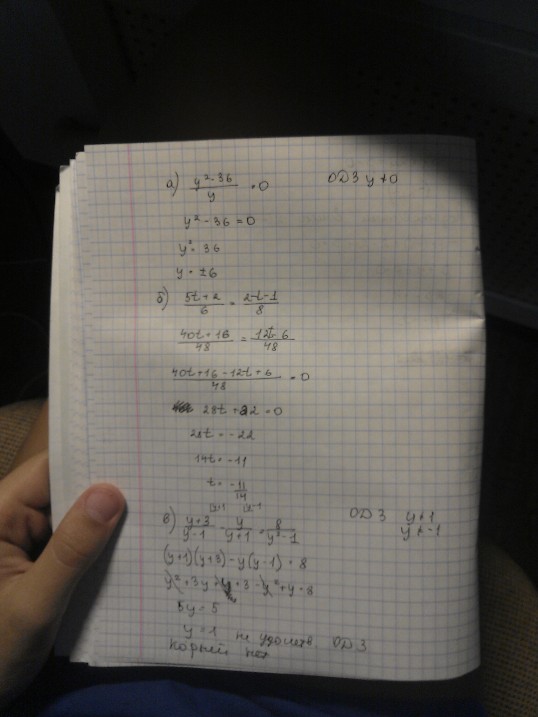 а) y²-36/y = 0 ОДЗ y ≠ 0
y² - 36 = 0
y² = 36
y = ±6
б) 5t+2/6 = 2t-1/8
40t+16/48 = 12t-6/48
40t+16-12t+6/48 = 0
28t + 22 = 0
28t = -22
14t = -11
t = -11/14
в) y+3/y-1 - y/y+1 = 8/y²-1 ОДЗ y ≠ 1 y ≠ -1
(y+1)(y+3) - y(y-1) = 8
y² + 3y + y + 3 - y² + y = 8
5y = 5
y = 1 не удолетв ОДЗ
Корней нет